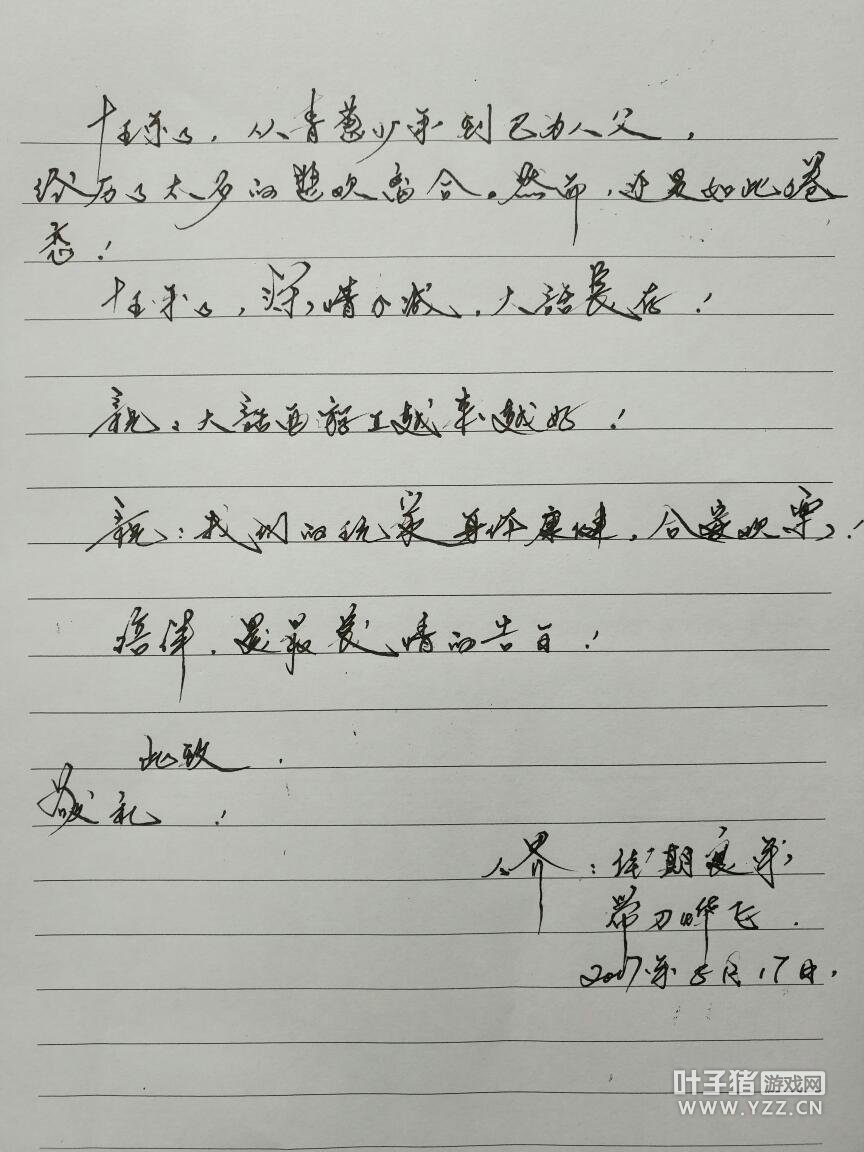 十五年了，从青葱少年到已为人父，
经历了太多的悲欢离合。然而，还是如此眷
恋！
十五年了，深情不减，大话长存！
祝：大话西游II越来越好！
祝：我们的玩家身体康健，合家欢乐！
陪伴，是最长情的告白！
此致
敬礼！
人界：佳期良辰
带刀 飞
2017年5月17日，
叶子猪游戏网
WWW.YZZ.CN